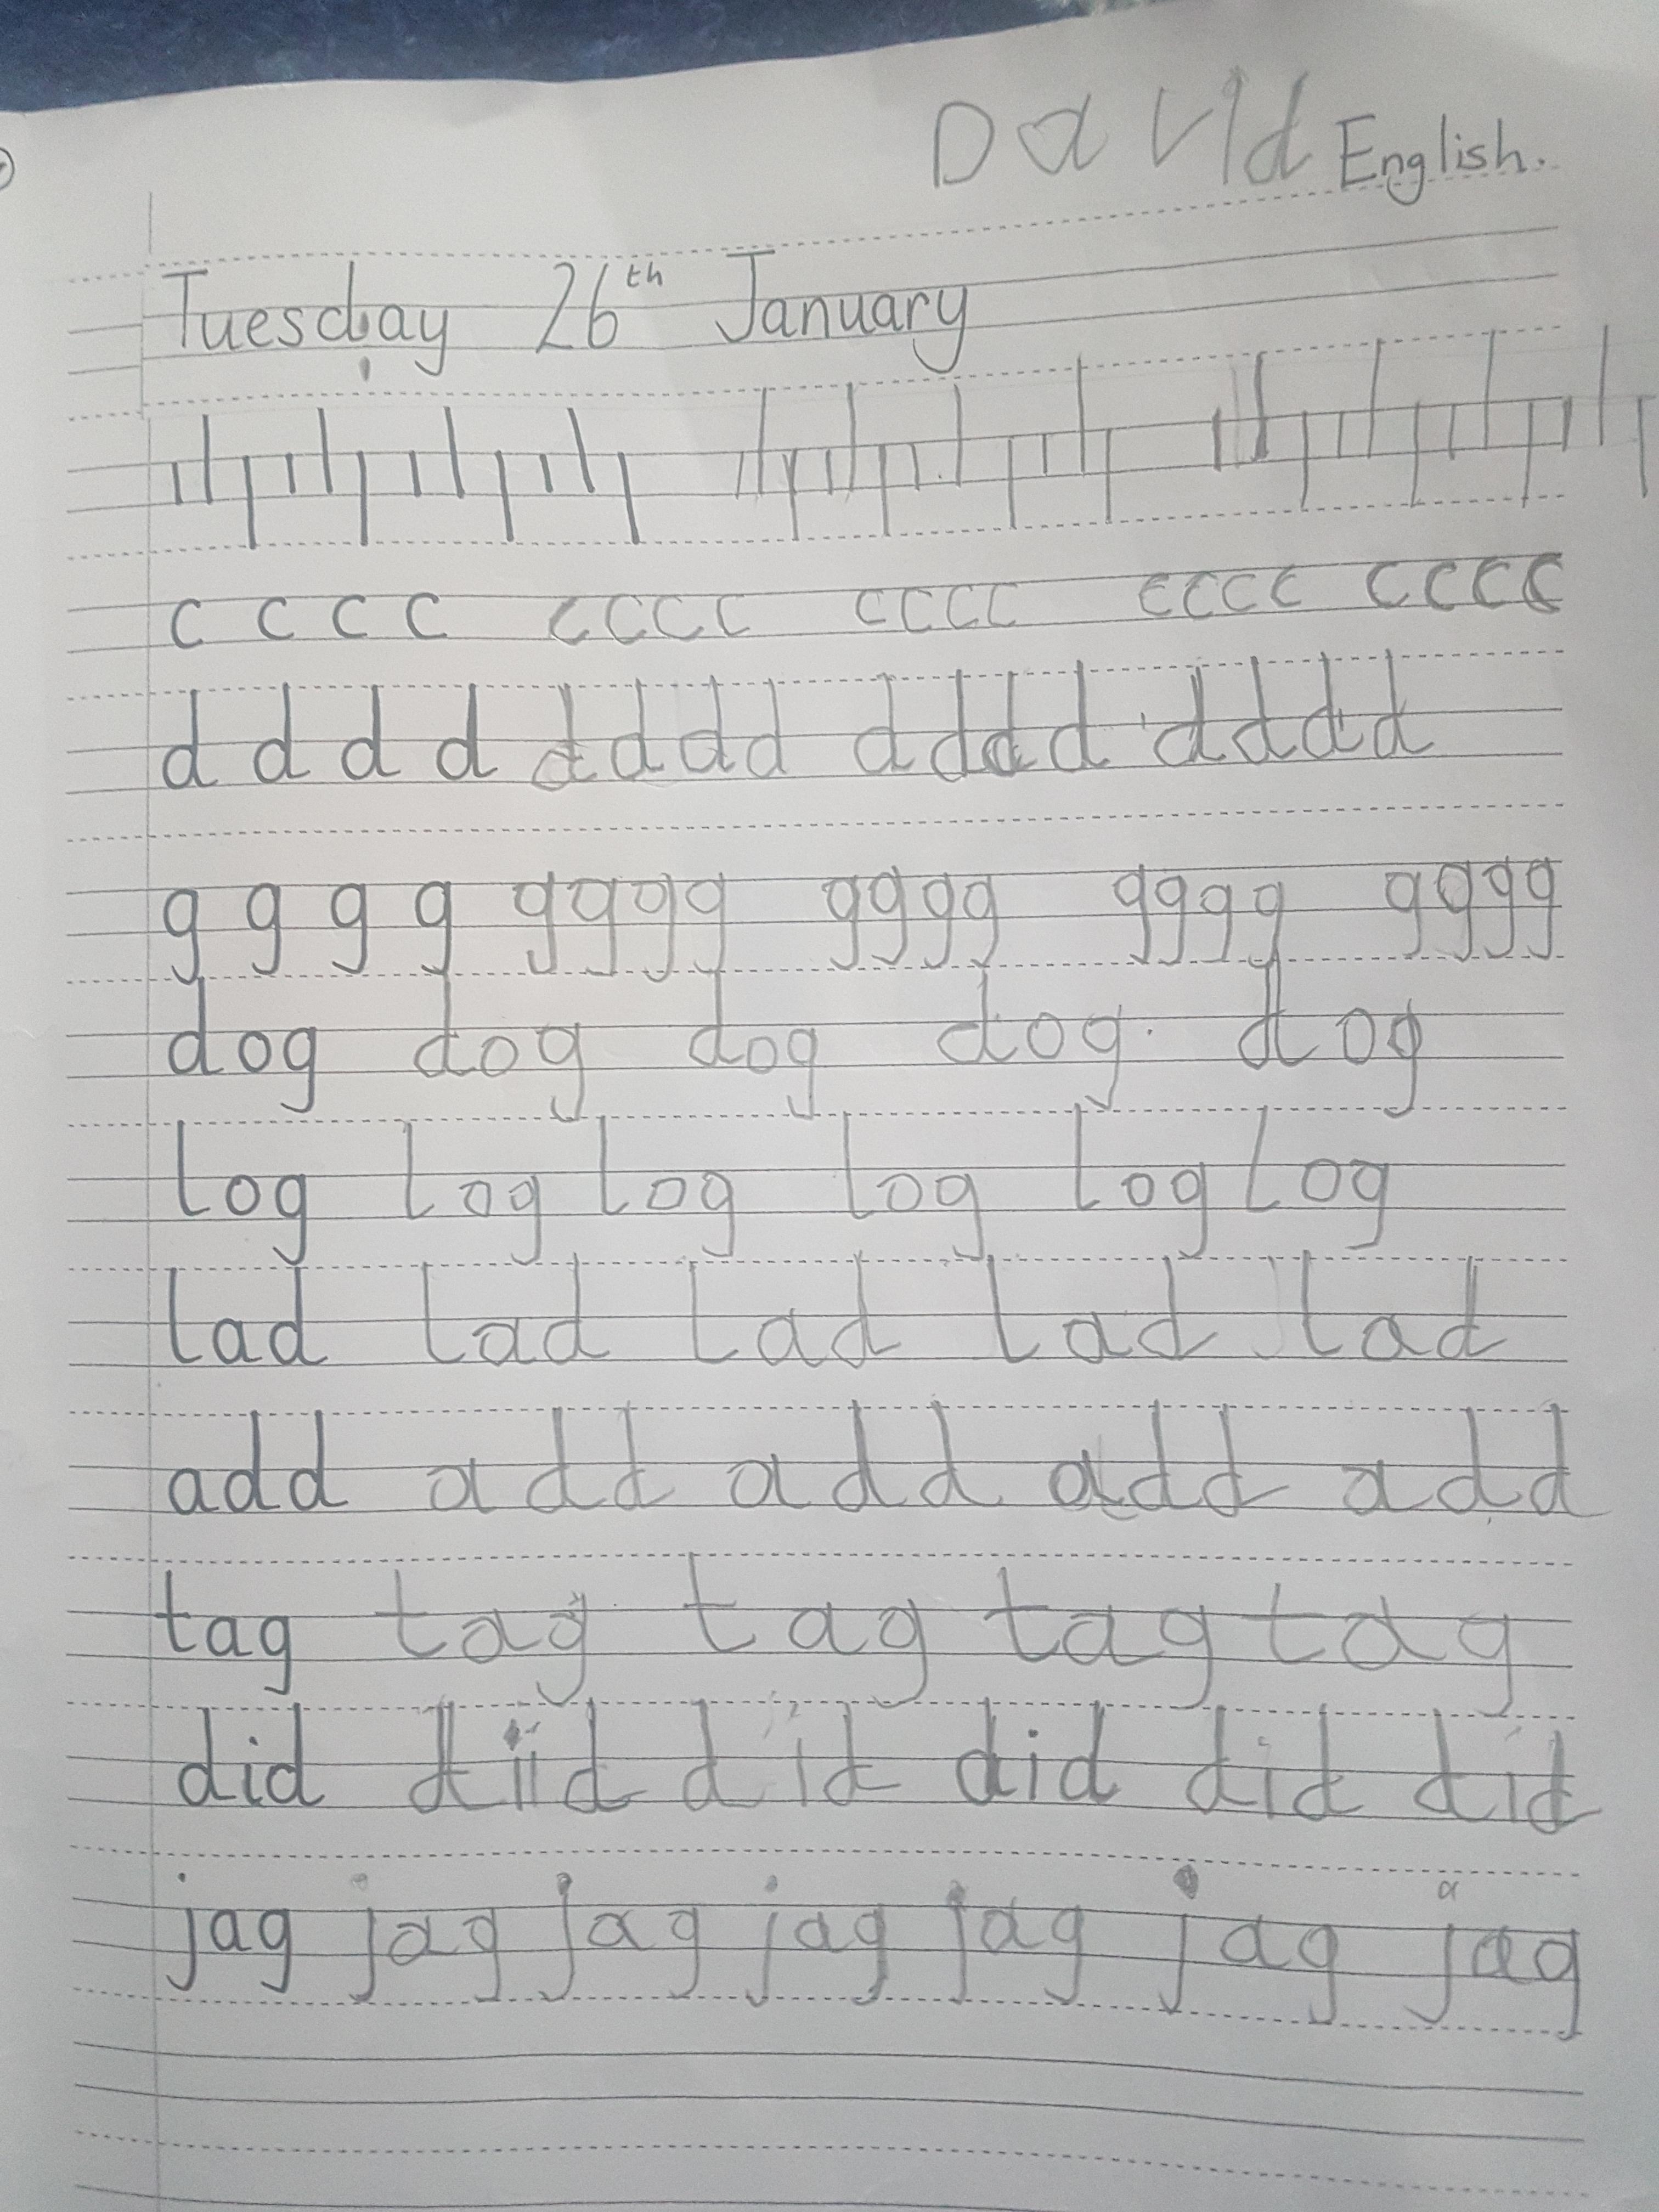 David English.
Tuesday 26th January
c c c c c c c c c c c c c c c c c c c c
d d d d d d d d d d d d d d d d
g g g g g g g g g g g g g g g g g g g g
dog dog dog dog. dog
log log log log log log
lad lad lad lad lad
add add add add add
tag tag tag tag tag
did diid did did did did
jag jag jag jag jag jag jag